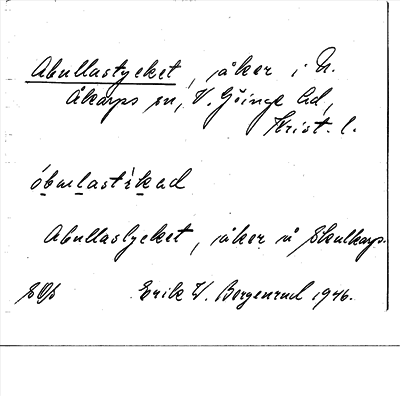 Abullastycket, åker i N.
Åkarps sn, V. Göinge hd,
Krist. l.
Abullastycket, åker å Skulkarp.
Erik W. Borgenrud 1946.